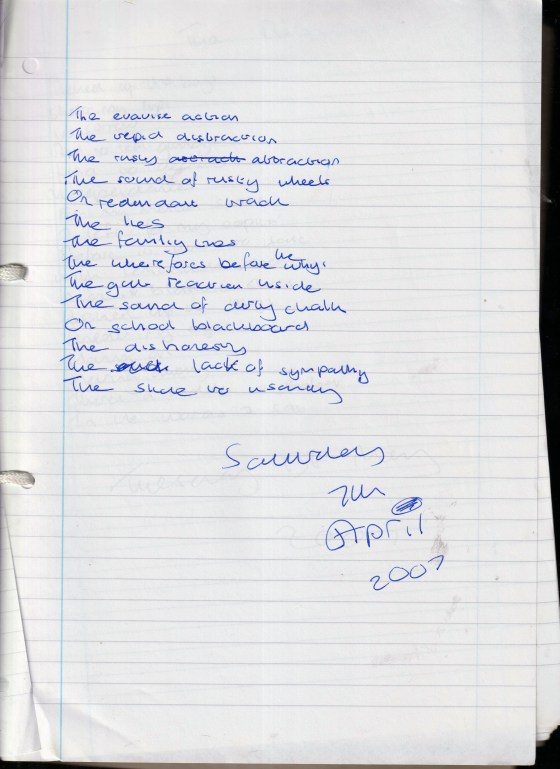 The evasive action
The tepid distraction
The rusty attraction
The sound of rusty wheels
On redundant track
The lies
The family lives
The wherefores before the whys
The gut reaction inside
The sound of dirty chalk
On school blackboard
The dishonesty
The lack of sympathy
The slide to insanity
Saturday
7th
April
2007